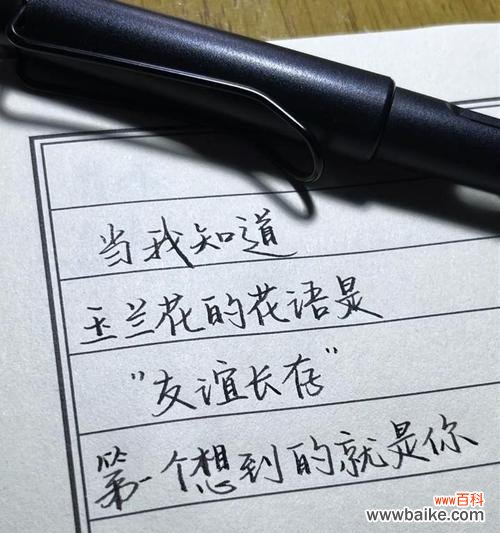 当我知道
玉兰花的花语是
"友谊长存"
第一个想到的就是你
www百科
www.baike.com